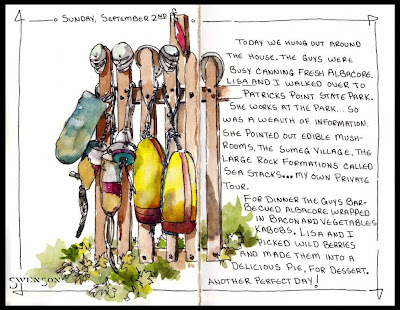 Sunday, September 2nd
Today we hung out around
the house. The guys were
busy canning fresh albacore.
Lisa and I walked over to
Patricks Point State Park.
She works at the Park... so
was a wealth of information.
She pointed out edible mush-
rooms, the Sumeg Village, the
large rock formations called
Sea Stacks... my own private
tour.
For dinner the guys bar-
becued albacore wrapped
in bacon and vegetables
kabobs. Lisa and I
picked wild berries
and made them into a
delicious pie, for dessert.
Another perfect day!
Swenson